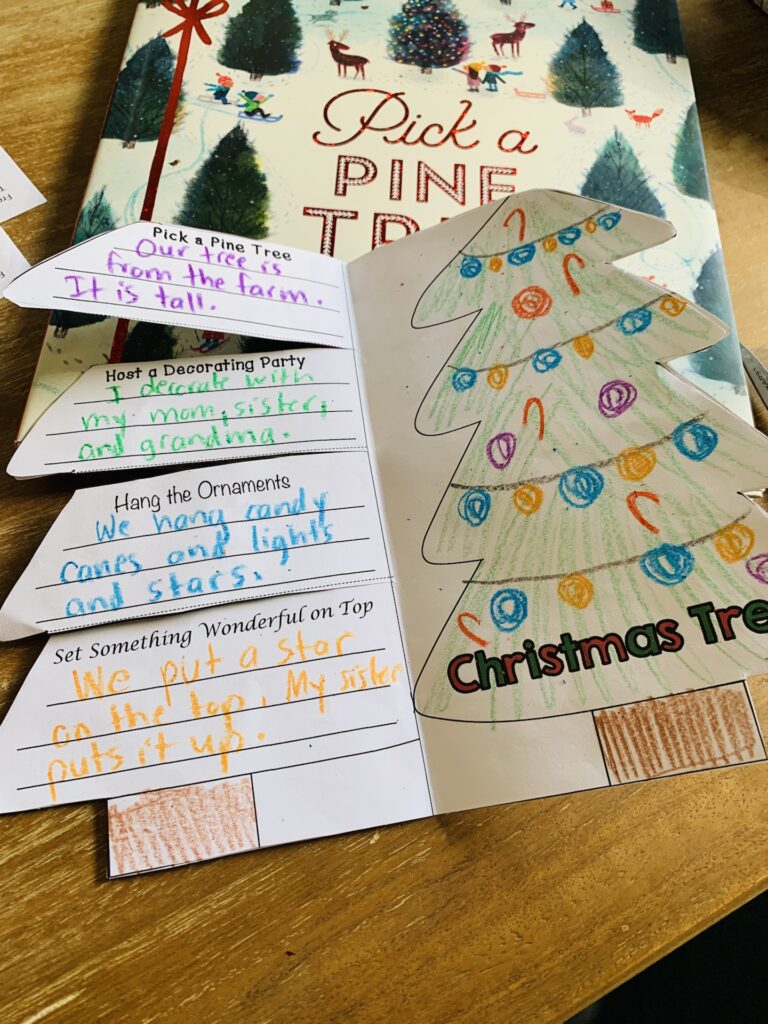 Pick a
PINE
TR
Pick a Pine Tree
Our tree is
from the farm.
It is tall.
Host a Decorating Party
I decorate with
my mom, sister,
and grandma.
Hang the Ornaments
We hang candy
canes and lights
and stars.
Set Something Wonderful on Top
We put a star
on the top. My sister
puts it up.
Christmas Tre